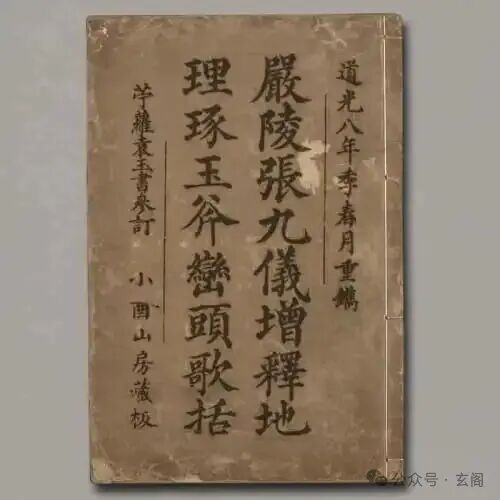 道光八年季春月重鐫
嚴陵張九儀增釋地
理琢玉斧巒頭歌括
苧蘿袁玉書參訂 小酉山房藏板
公众号·玄阁